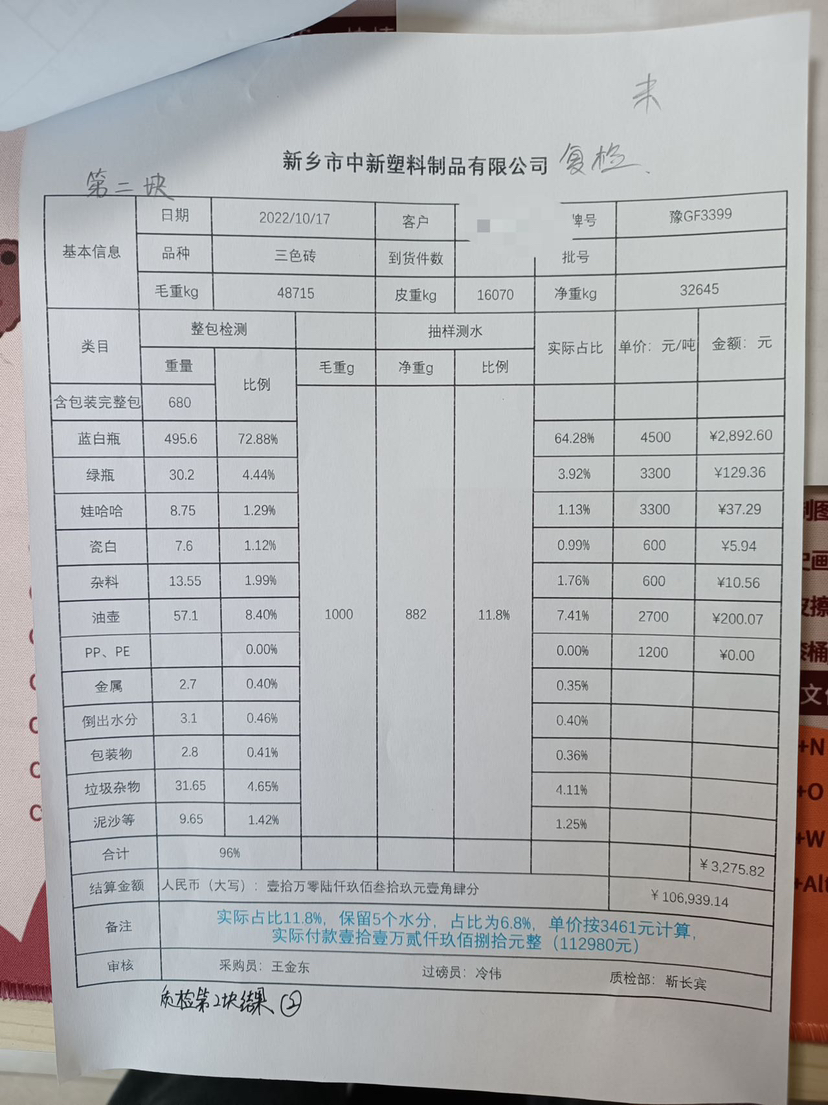 未
新乡市中新塑料制品有限公司 复检、
第二块
基本信息 日期 2022/10/17 客户 牌号 豫GF3399
品种 三色砖 到货件数 批号
毛重kg 48715 皮重kg 16070 净重kg 32645
类目 整包检测 抽样测水 实际占比 单价：元/吨 金额：元
重量 比例 毛重g 净重g 比例
含包装完整包 680
蓝白瓶 495.6 72.88% 64.28% 4500 ¥2,892.60
绿瓶 30.2 4.44% 3.92% 3300 ¥129.36
娃哈哈 8.75 1.29% 1.13% 3300 ¥37.29
瓷白 7.6 1.12% 0.99% 600 ¥5.94
杂料 13.55 1.99% 1.76% 600 ¥10.56
油壶 57.1 8.40% 1000 882 11.8% 7.41% 2700 ¥200.07
PP、PE 0.00% 0.00% 1200 ¥0.00
金属 2.7 0.40% 0.35%
倒出水分 3.1 0.46% 0.40%
包装物 2.8 0.41% 0.36%
垃圾杂物 31.65 4.65% 4.11%
泥沙等 9.65 1.42% 1.25%
合计 96% ¥3,275.82
结算金额 人民币（大写）：壹拾万零陆仟玖佰叁拾玖元壹角肆分 ¥106,939.14
备注 实际占比11.8%，保留5个水分，占比为6.8%，单价按3461元计算，
实际付款壹拾壹万贰仟玖佰捌拾元整（112980元）
审核 采购员：王金东 过磅员：冷伟 质检部：靳长宾
质检第2块结果 ②
制图
史画
皮擦
漆桶
+N
+O
+W
+Alt